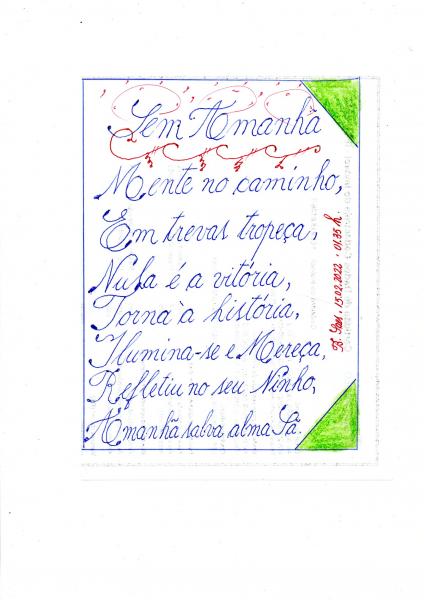 Sem Amanhã
Mente no caminho,
Em trevas tropeça,
Nula é a vitória,
Torna à história,
Ilumina-se e Mereça,
Refletiu no seu Ninho,
Amanhã salva alma Sã.
15.02.2022. 01.35 h.